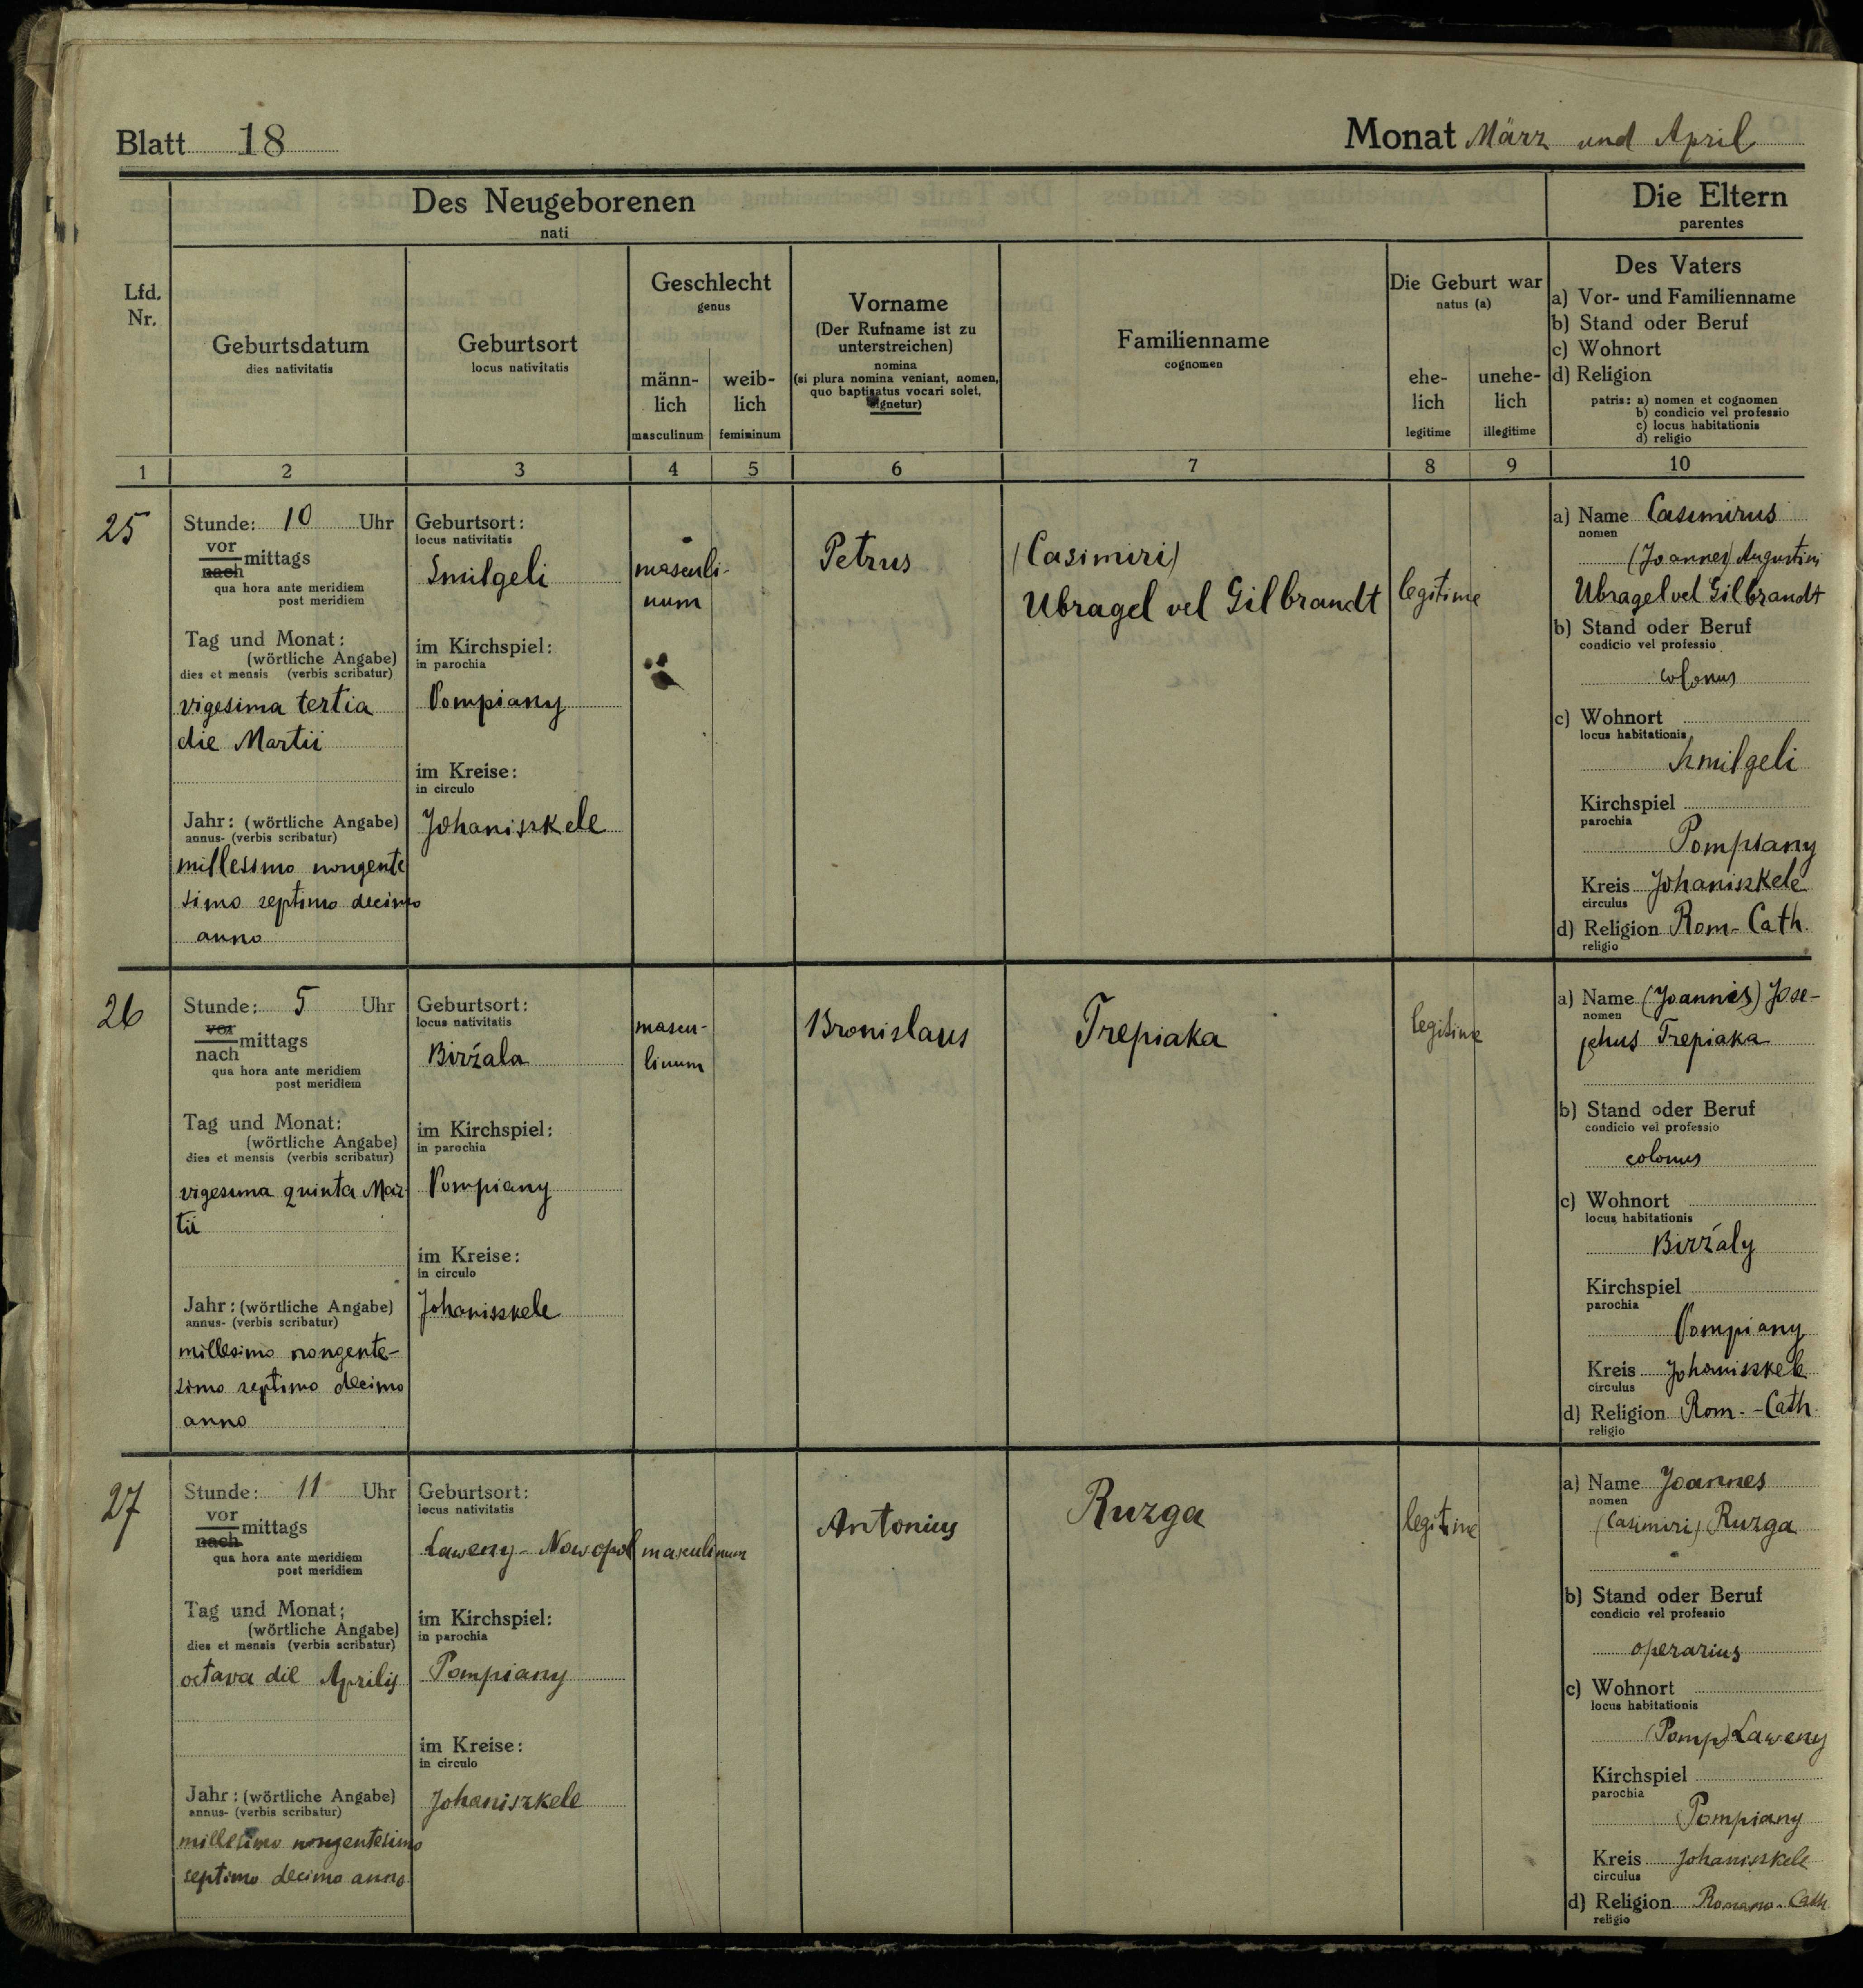 Blatt 18
Monat März und April
Des Neugeborenen
nati
Die Eltern
parentes
Lfd.
Nr.
Geburtsdatum
dies nativitatis
Geburtsort
locus nativitatis
Geschlecht
genus
männ-
lich
masculinum
weib-
lich
femininum
Vorname
(Der Rufname ist zu
unterstreichen)
nomina
(si plura nomina veniant, nomen,
quo baptisatus vocari solet,
signetur)
Familienname
cognomen
Die Geburt war
natus (a)
ehe-
lich
legitime
unehe-
lich
illegitime
Des Vaters
a) Vor- und Familienname
b) Stand oder Beruf
c) Wohnort
d) Religion
patris: a) nomen et cognomen
b) condicio vel professio
c) locus habitationis
d) religio
1 2 3 4 5 6 7 8 9 10
25
Stunde: 10 Uhr
vor
mittags
nach
qua hora ante meridiem
post meridiem
Tag und Monat:
(wörtliche Angabe)
dies et mensis (verbis scribatur)
vigesima tertia
die Martii
Jahr: (wörtliche Angabe)
annus- (verbis scribatur)
millesimo nongente
simo septimo decimo
anno
Geburtsort:
locus nativitatis
Smilgeli
im Kirchspiel:
in parochia
Pompiany
im Kreise:
in circulo
Johaniszkele
masculi-
num
Petrus
(Casimiri)
Ubragel vel Gilbrandt
legitime
a) Name Casimirus
nomen
(Joannes) Augustini
Ubragel vel Gilbrandt
b) Stand oder Beruf
condicio vel professio
colonus
c) Wohnort
locus habitationis
Smilgeli
Kirchspiel
parochia
Pompiany
Kreis Johaniszkele
circulus
d) Religion Rom-Cath.
religio
26
Stunde: 5 Uhr
vor
mittags
nach
qua hora ante meridiem
post meridiem
Tag und Monat:
(wörtliche Angabe)
dies et mensis (verbis scribatur)
vigesima quinta Mar-
tii
Jahr: (wörtliche Angabe)
annus- (verbis scribatur)
millesimo nongente-
simo septimo decimo
anno
Geburtsort:
locus nativitatis
Birżala
im Kirchspiel:
in parochia
Pompiany
im Kreise:
in circulo
Johaniszkele
mascu-
linum
Bronislaus
Trepiaka
legitime
a) Name (Joannis) Jose-
nomen
phus Trepiaka
b) Stand oder Beruf
condicio vel professio
colonus
c) Wohnort
locus habitationis
Birżaly
Kirchspiel
parochia
Pompiany
Kreis Johaniszkele
circulus
d) Religion Rom.-Cath.
religio
27
Stunde: 11 Uhr
vor
mittags
nach
qua hora ante meridiem
post meridiem
Tag und Monat:
(wörtliche Angabe)
dies et mensis (verbis scribatur)
octava die Aprilis
Jahr: (wörtliche Angabe)
annus- (verbis scribatur)
millesimo nongentesimo
septimo decimo anno
Geburtsort:
locus nativitatis
Laweny-Nowopol
im Kirchspiel:
in parochia
Pompiany
im Kreise:
in circulo
Johaniszkele
masculinum
Antonius
Ruzga
legitime
a) Name Joannes
nomen
(Casimiri) Ruzga
b) Stand oder Beruf
condicio vel professio
operarius
c) Wohnort
locus habitationis
(Pomp) Laweny
Kirchspiel
parochia
Pompiany
Kreis Johaniszkele
circulus
d) Religion Romano-Cath
religio